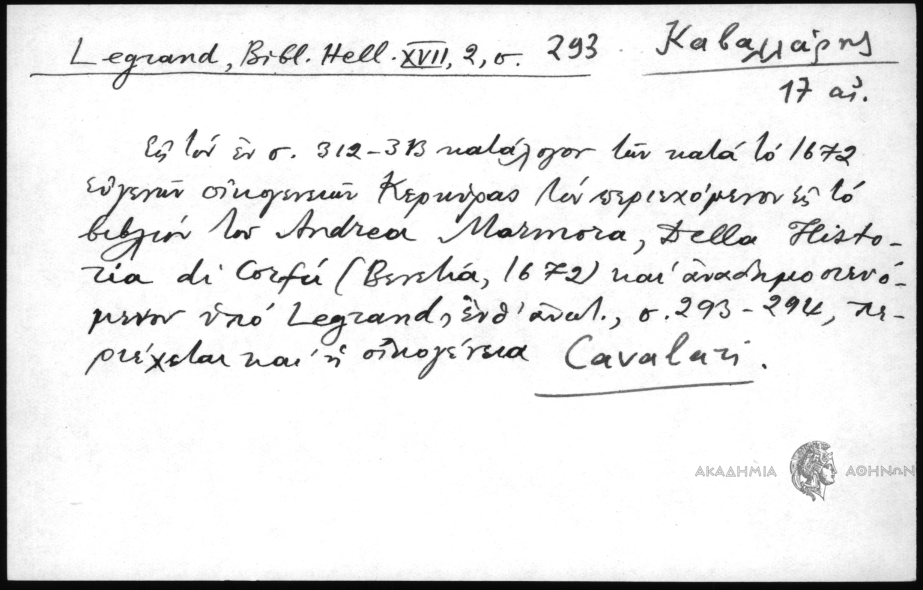 Legrand, Bibl. Hell. XVII, 2, σ. 293
Καβαλλάρης
17 αἰ.
Εἰς τὸν ἐν σ. 312-313 κατάλογον τῶν κατὰ τὸ 1672
εὐγενῶν οἰκογενειῶν Κερκύρας τὸν περιεχόμενον εἰς τὸ
βιβλίον τοῦ Andrea Marmora, Della Histo-
ria di Corfú (Βενετία, 1672) καὶ ἀναδημοσιευό-
μενον ὑπὸ Legrand, ἔνθ' ἀνωτ., σ. 293-294, πε-
ριέχεται καὶ ἡ οἰκογένεια Cavalari.
ΑΚΑΔΗΜΙΑ ΑΘΗΝΩΝ